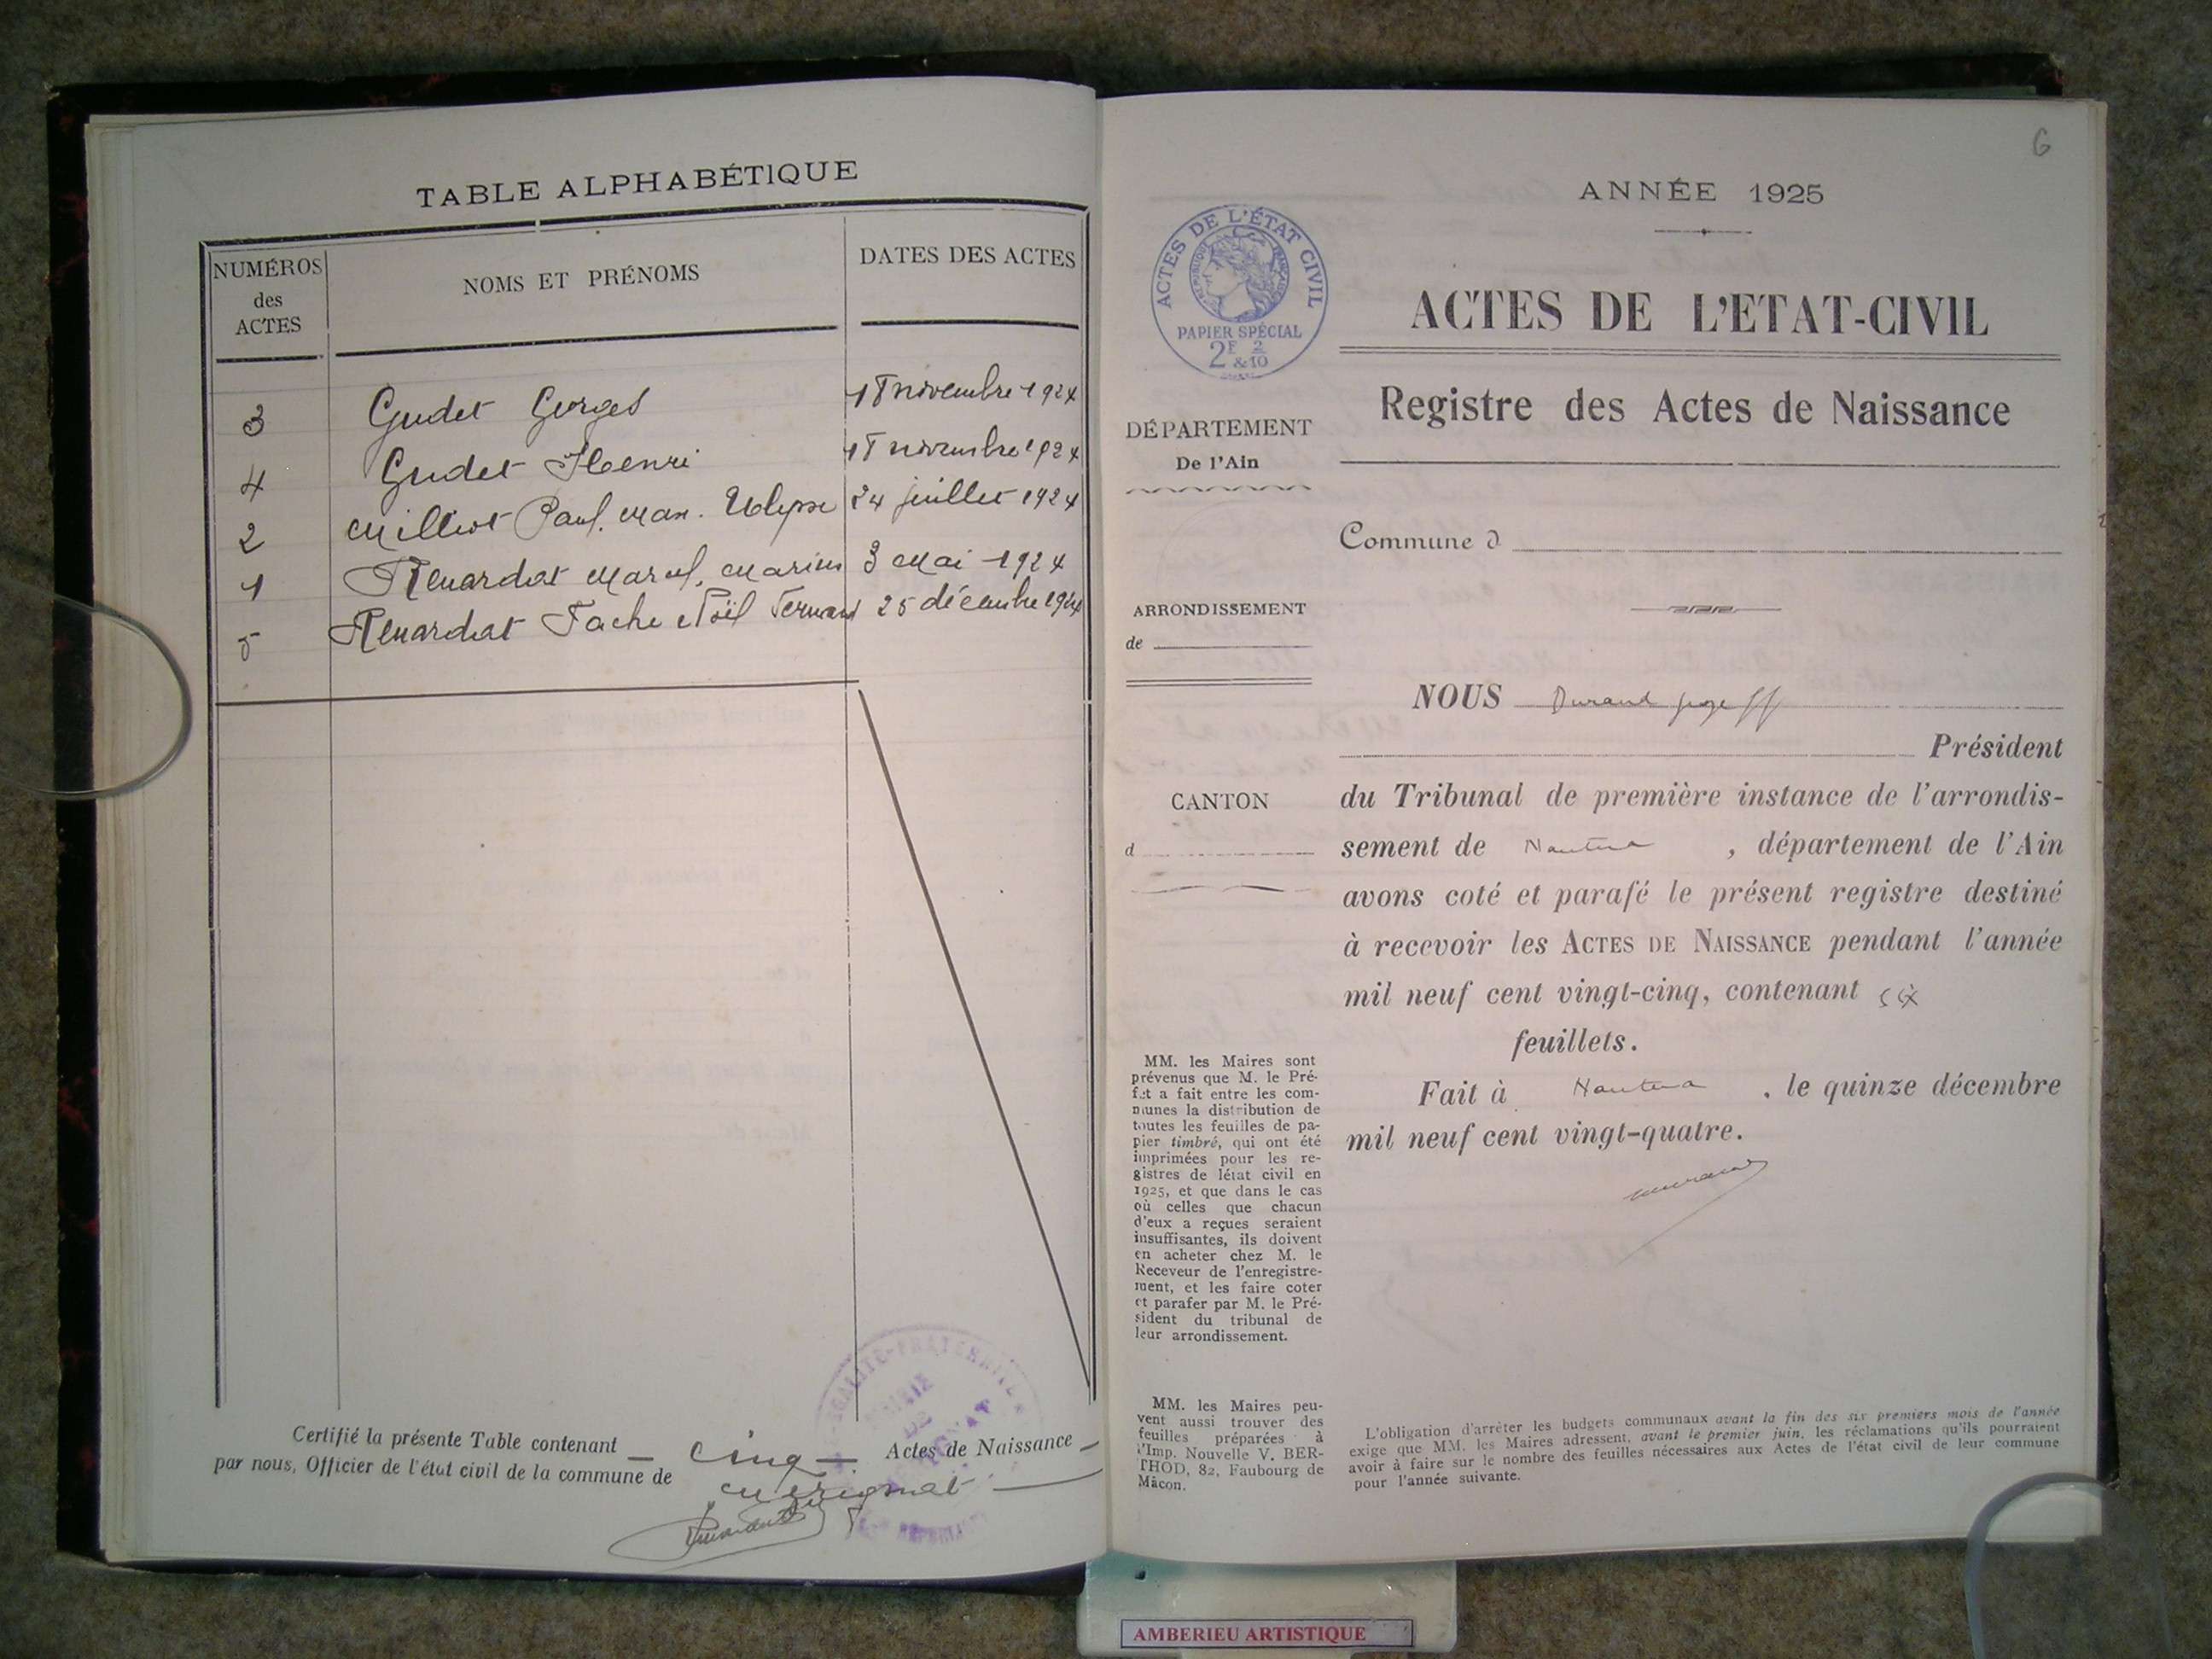 TABLE ALPHABÉTIQUE
NUMÉROS des ACTES
NOMS ET PRÉNOMS
DATES DES ACTES
3 Gudet Georges 18 novembre 1924
4 Gudet Henri 18 novembre 1924
2 Milliot Paul. Max. Ulysse 24 juillet 1924
1 Renardat Marcel, Marius 3 Mai 1924
5 Renardat Fache Noël Fernand 25 décembre 1924
Certifié la présente Table contenant — Cinq — Actes de Naissance —
par nous, Officier de l'état civil de la commune de Mérignat —
6
ANNÉE 1925
ACTES DE L'ÉTAT CIVIL
RÉPUBLIQUE FRANÇAISE
PAPIER SPÉCIAL
2F & 2/10
ACTES DE L'ETAT-CIVIL
Registre des Actes de Naissance
DÉPARTEMENT
De l'Ain
Commune d
ARRONDISSEMENT
de
CANTON
d
NOUS Durand juge ff
Président
du Tribunal de première instance de l'arrondis-
sement de Nantua , département de l'Ain
avons coté et parafé le présent registre destiné
à recevoir les ACTES DE NAISSANCE pendant l'année
mil neuf cent vingt-cinq, contenant six
feuillets.
Fait à Nantua , le quinze décembre
mil neuf cent vingt-quatre.
MM. les Maires sont
prévenus que M. le Pré-
fet a fait entre les com-
munes la distribution de
toutes les feuilles de pa-
pier timbré, qui ont été
imprimées pour les re-
gistres de létat civil en
1925, et que dans le cas
où celles que chacun
d'eux a reçues seraient
insuffisantes, ils doivent
en acheter chez M. le
Receveur de l'enregistre-
ment, et les faire coter
et parafer par M. le Pré-
sident du tribunal de
leur arrondissement.
MM. les Maires peu-
vent aussi trouver des
feuilles préparées à
l'Imp. Nouvelle V. BER-
THOD, 82, Faubourg de
Mâcon.
L'obligation d'arrêter les budgets communaux avant la fin des six premiers mois de l'année
exige que MM. les Maires adressent, avant le premier juin, les réclamations qu'ils pourraient
avoir à faire sur le nombre des feuilles nécessaires aux Actes de l'état civil de leur commune
pour l'année suivante.
AMBERIEU ARTISTIQUE